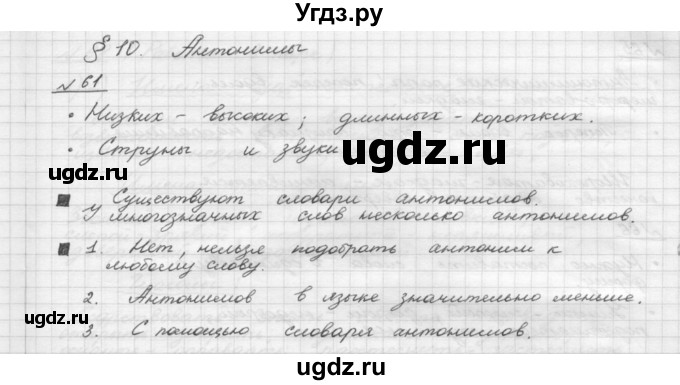 Угдз.ру
§ 10. Антонимы
№ 61
• Низких - высоких; длинных - коротких.
• Струны и звуки
ugdz.ru
ugdz.ru
Существуют словари антонимов.
У многозначных слов несколько антонимов.
1. Нет, нельзя подобрать антоним к
любому слову.
2. Антонимов в языке значительно меньше.
ugdz.ru
3. С помощью словаря антонимов.
ugdz.ru
ugdz.ru